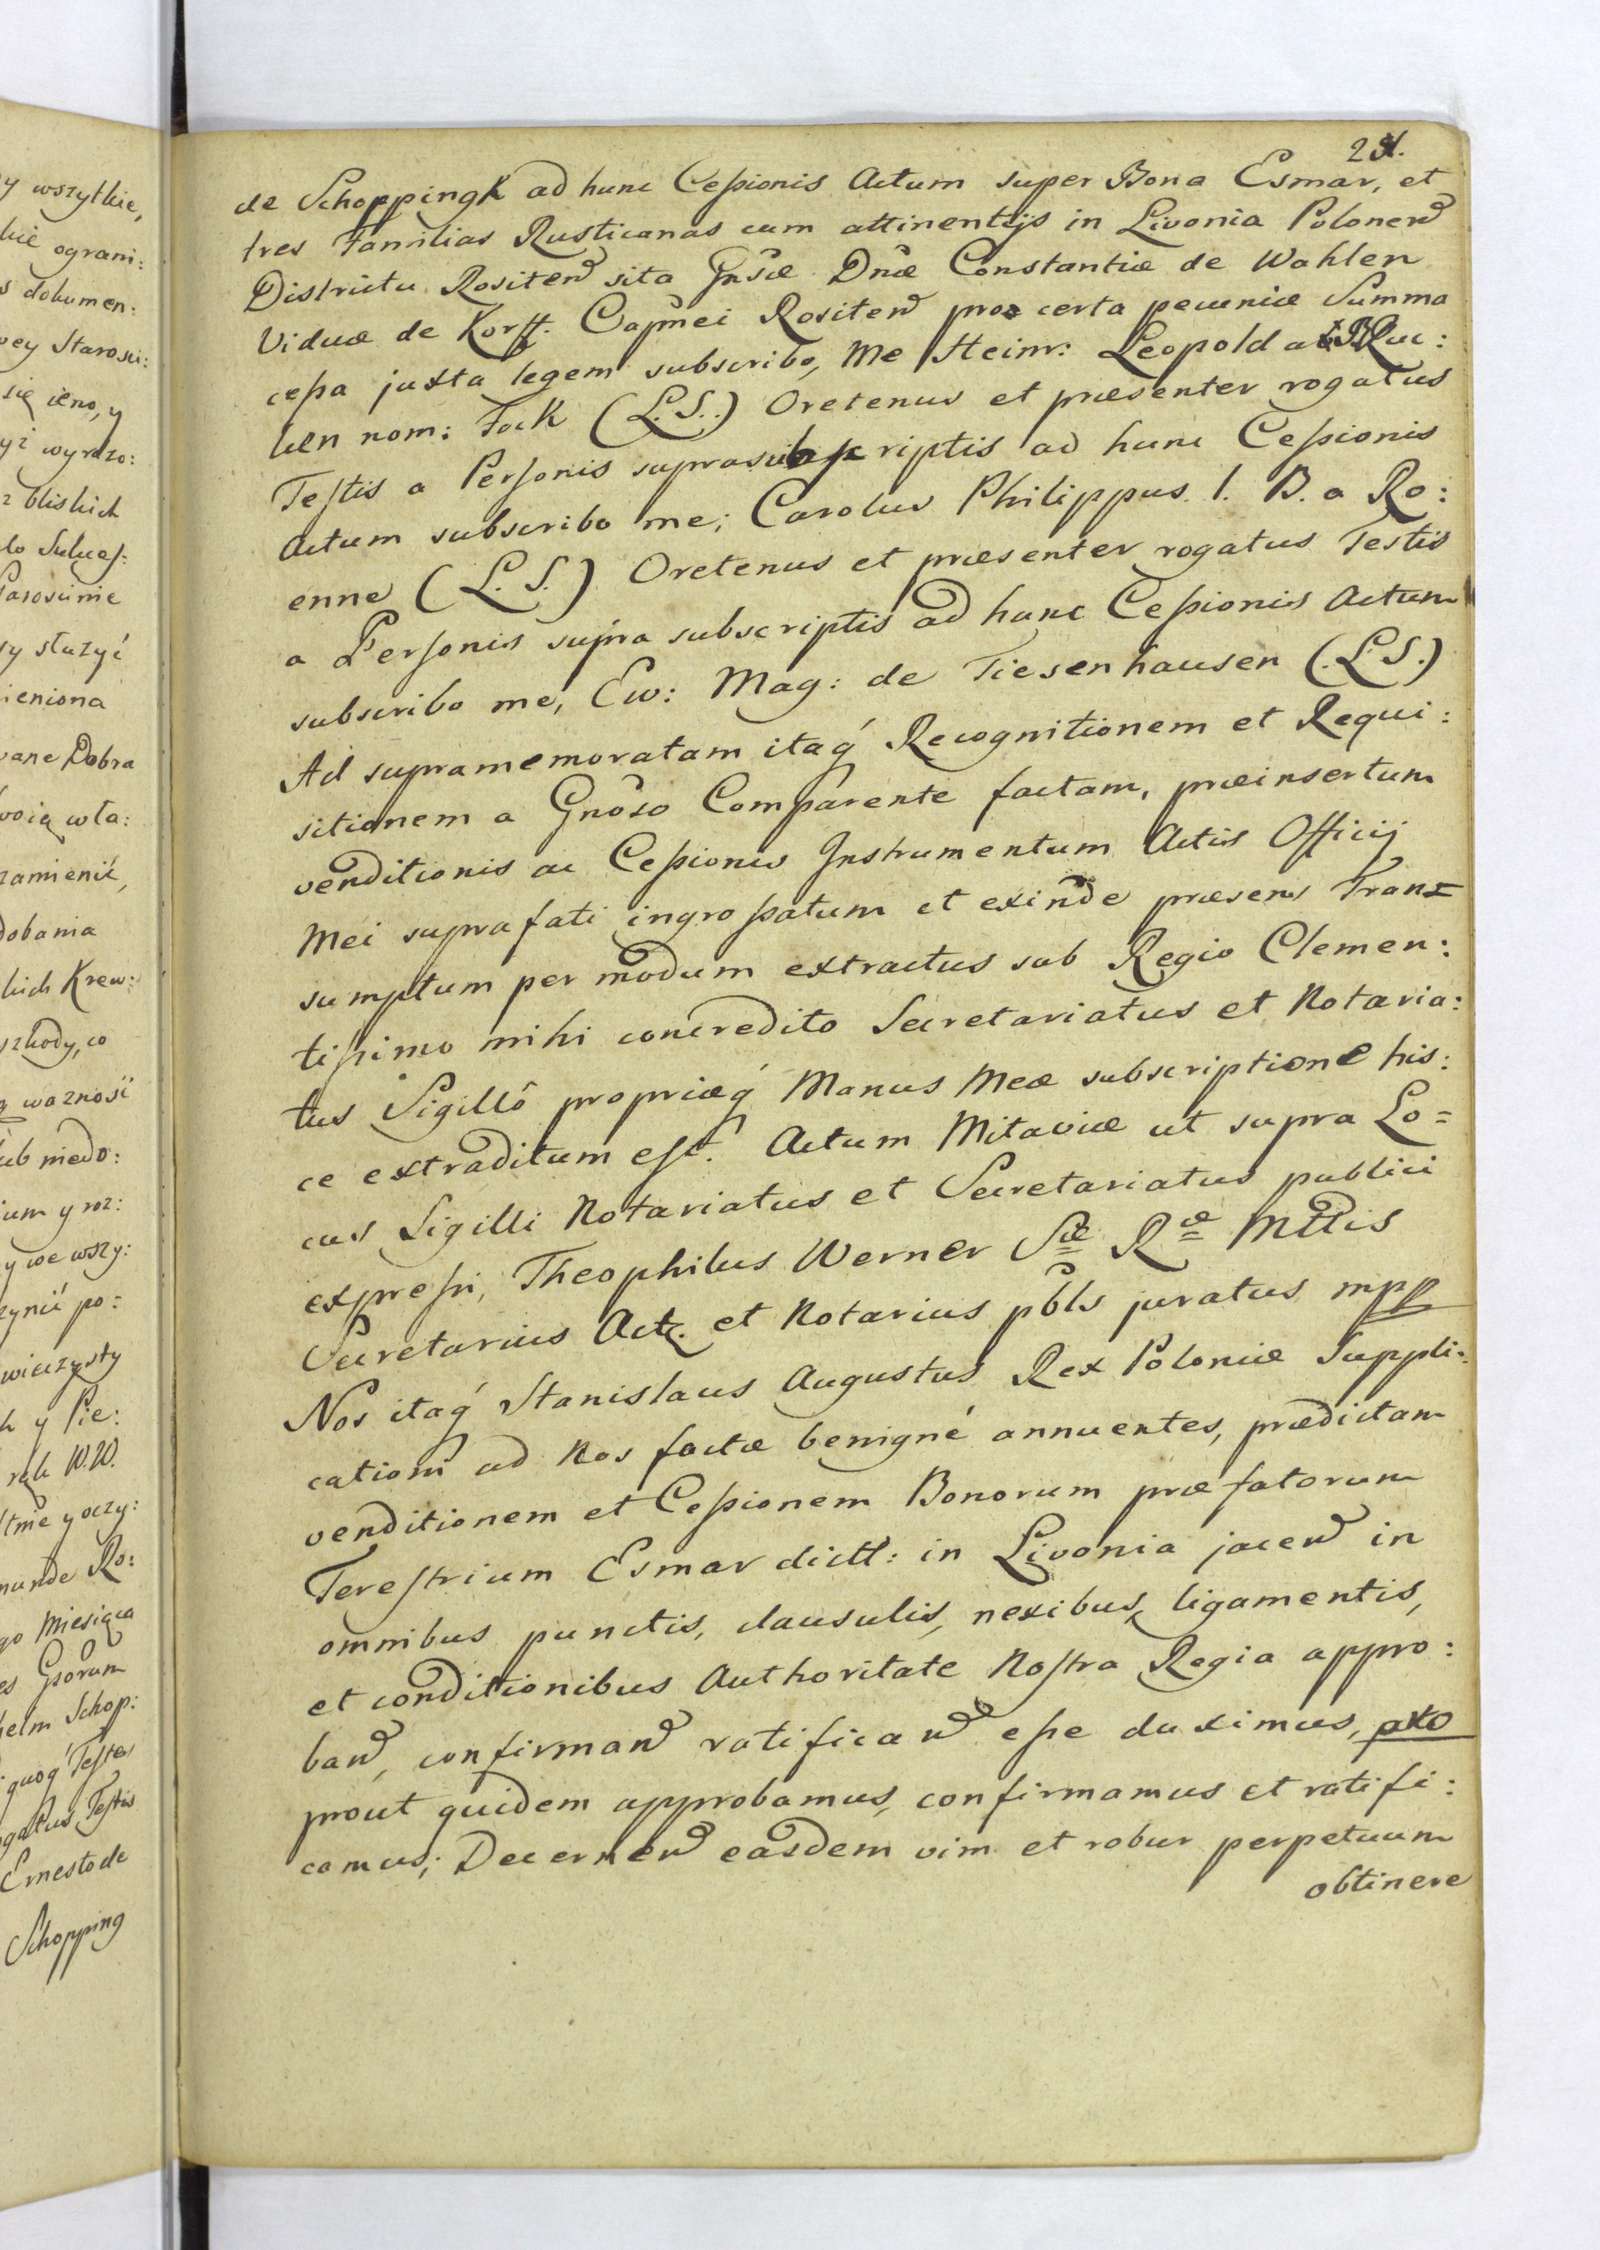 y wszytkie,
kie ograni:
s dokumen:
wey Starosci:
się ieno, y
yż wyrazo:
z bliskich
do Sukces:
sy służyć
ieniona
wane Dobra
woią wła:
zamienić,
dobania
kich Krew:
szkody, co
waznosc
ub niedo:
ium y roz:
y we wszy:
zynić po=
wieczysty
h y Pie:
rąk W.W.
stnie y oczy:
munde Ro:
go Miesiąca
es Gsorum
helm Schop:
quoq́ Testes
ogatus Testis
Ernesto de
Schopping
de Schoppingk ad hunc Cessionis Actum super Bona Esmar, et
tres Familias Rusticanas cum attinentijs in Livonia Polonen
Districtu Rositen sita Gnsæ Dnæ Constantiæ de Wahlen
Viduæ de Korff. Capnei Rositen pro certa pecuniæ Summa
cessa juxta legem subscribo, me Heinr: Leopold a
ken nom: Fock (L.S.) Oretenus et præsenter rogatus
Testis a Personis suprasubscriptis ad hunc Cessionis
Actum subscribo me; Carolus Philippus l. B. a Ro:
enne (L.S.) Oretenus et præsenter rogatus Testis
a Personis supra subscriptis ad hunc Cessionis Actum
subscribo me, Ew: Mag: de Tiesenhausen (L.S.)
Ad supramemoratam itaq́ Recognitionem et Requi:
sitionem a Gnoso Comparente factam, præinsertum
venditionis ac Cessionis Instrumentum Actis Officij
Mei suprafati ingrossatum et exinde præsens Tran=
sumptum per modum extractus sub Regio Clemen:
tissimo mihi concredito Secretariatus et Notaria:
tus Sigillô propriæq́ Manus Meæ subscriptione his:
ce extraditum est. Actum Mitaviæ ut supra Lo=
cus Sigilli Notariatus et Secretariatus publici
expressi, Theophilus Werner Sæ Ræ Mttis
Secretarius Act. et Notarius pbls juratus mpp
Nos itaq́ Stanislaus Augustus Rex Poloniæ Suppli:
cationi ad Nos factæ benigné annuentes, prædictam
venditionem et Cessionem Bonorum præfatorum
Terestrium Esmar dictt: in Livonia jacen in
omnibus punctis, clausulis, nexibus, ligamentis,
et conditionibus Authoritate Nostra Regia appro:
ban, confirman ratifican esse duximus,
prout quidem approbamus, confirmamus et ratifi:
camus; Decernen easdem vim et robur perpetuum
obtinere